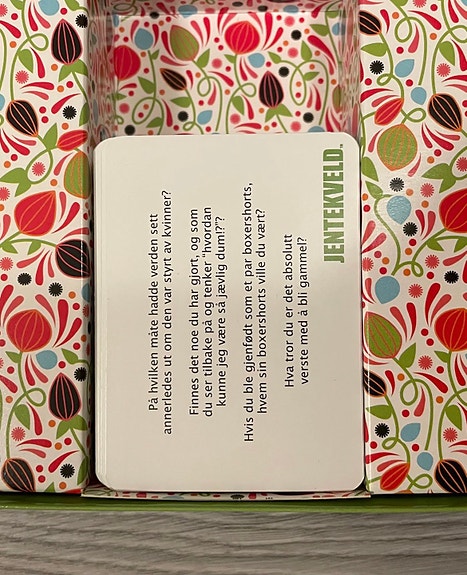 På hvilken måte hadde verden sett
annerledes ut om den var styrt av kvinner?
Finnes det noe du har gjort, og som
du ser tilbake på og tenker "hvordan
kunne jeg være så jævlig dum!?"?
Hvis du ble gjenfødt som et par boxershorts,
hvem sin boxershorts ville du vært?
Hva tror du er det absolutt
verste med å bli gammel?
JENTEKVELD™